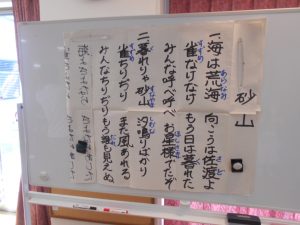 砂山
一、海は荒海 向こうは佐渡よ
雀なけなけ もう日は暮れた
みんな呼べ呼べ お星様でたぞ
二、暮れりゃ砂山 汐鳴りばかり
雀ちりぢり また風あれる
みんなちりぢり もう誰も見えぬ